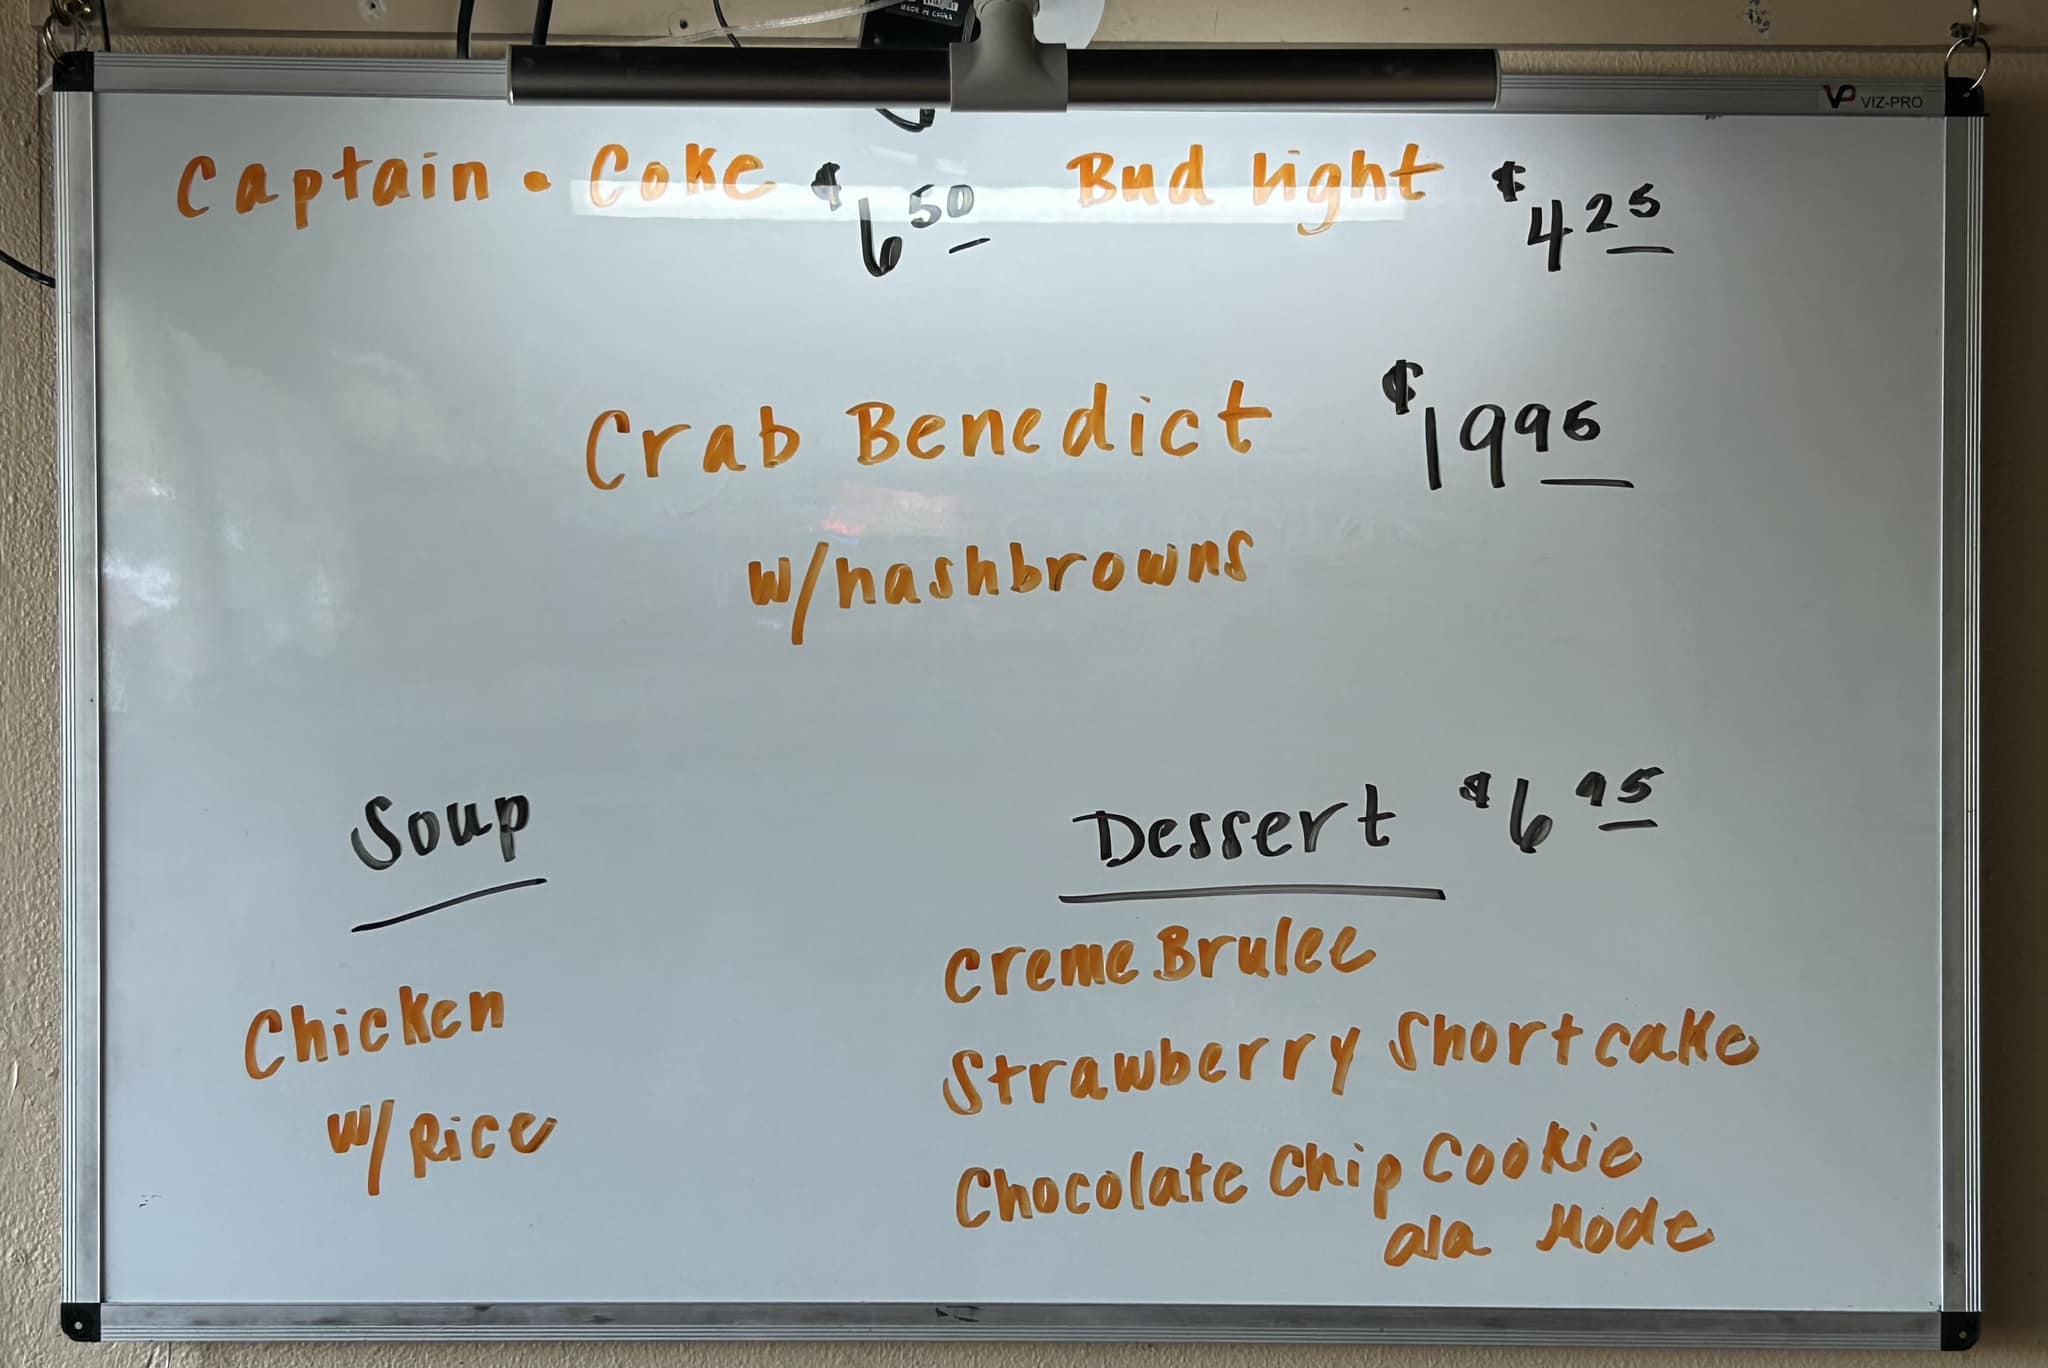 MADE IN CHINA
VP VIZ-PRO
Captain • Coke $6.50 Bud light $4.25
Crab Benedict $19.95
w/hashbrowns
Soup
Chicken
w/ Rice
Dessert $6.95
Creme Brulee
Strawberry Shortcake
Chocolate Chip Cookie
ala Mode